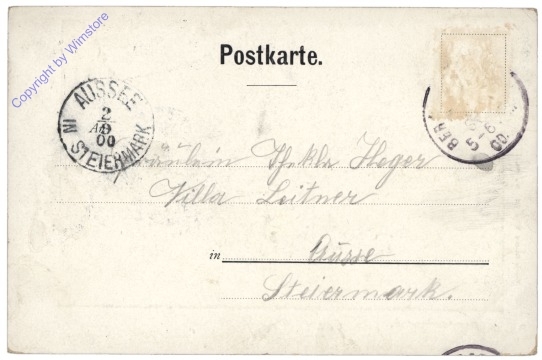 Copyright by Wimstore
Postkarte.
AUSSEE
2
9
00
IN STEIERMARK
BER
Fräulein Thekla Hoger
Villa Leitner
in Aussee
Steiermark.